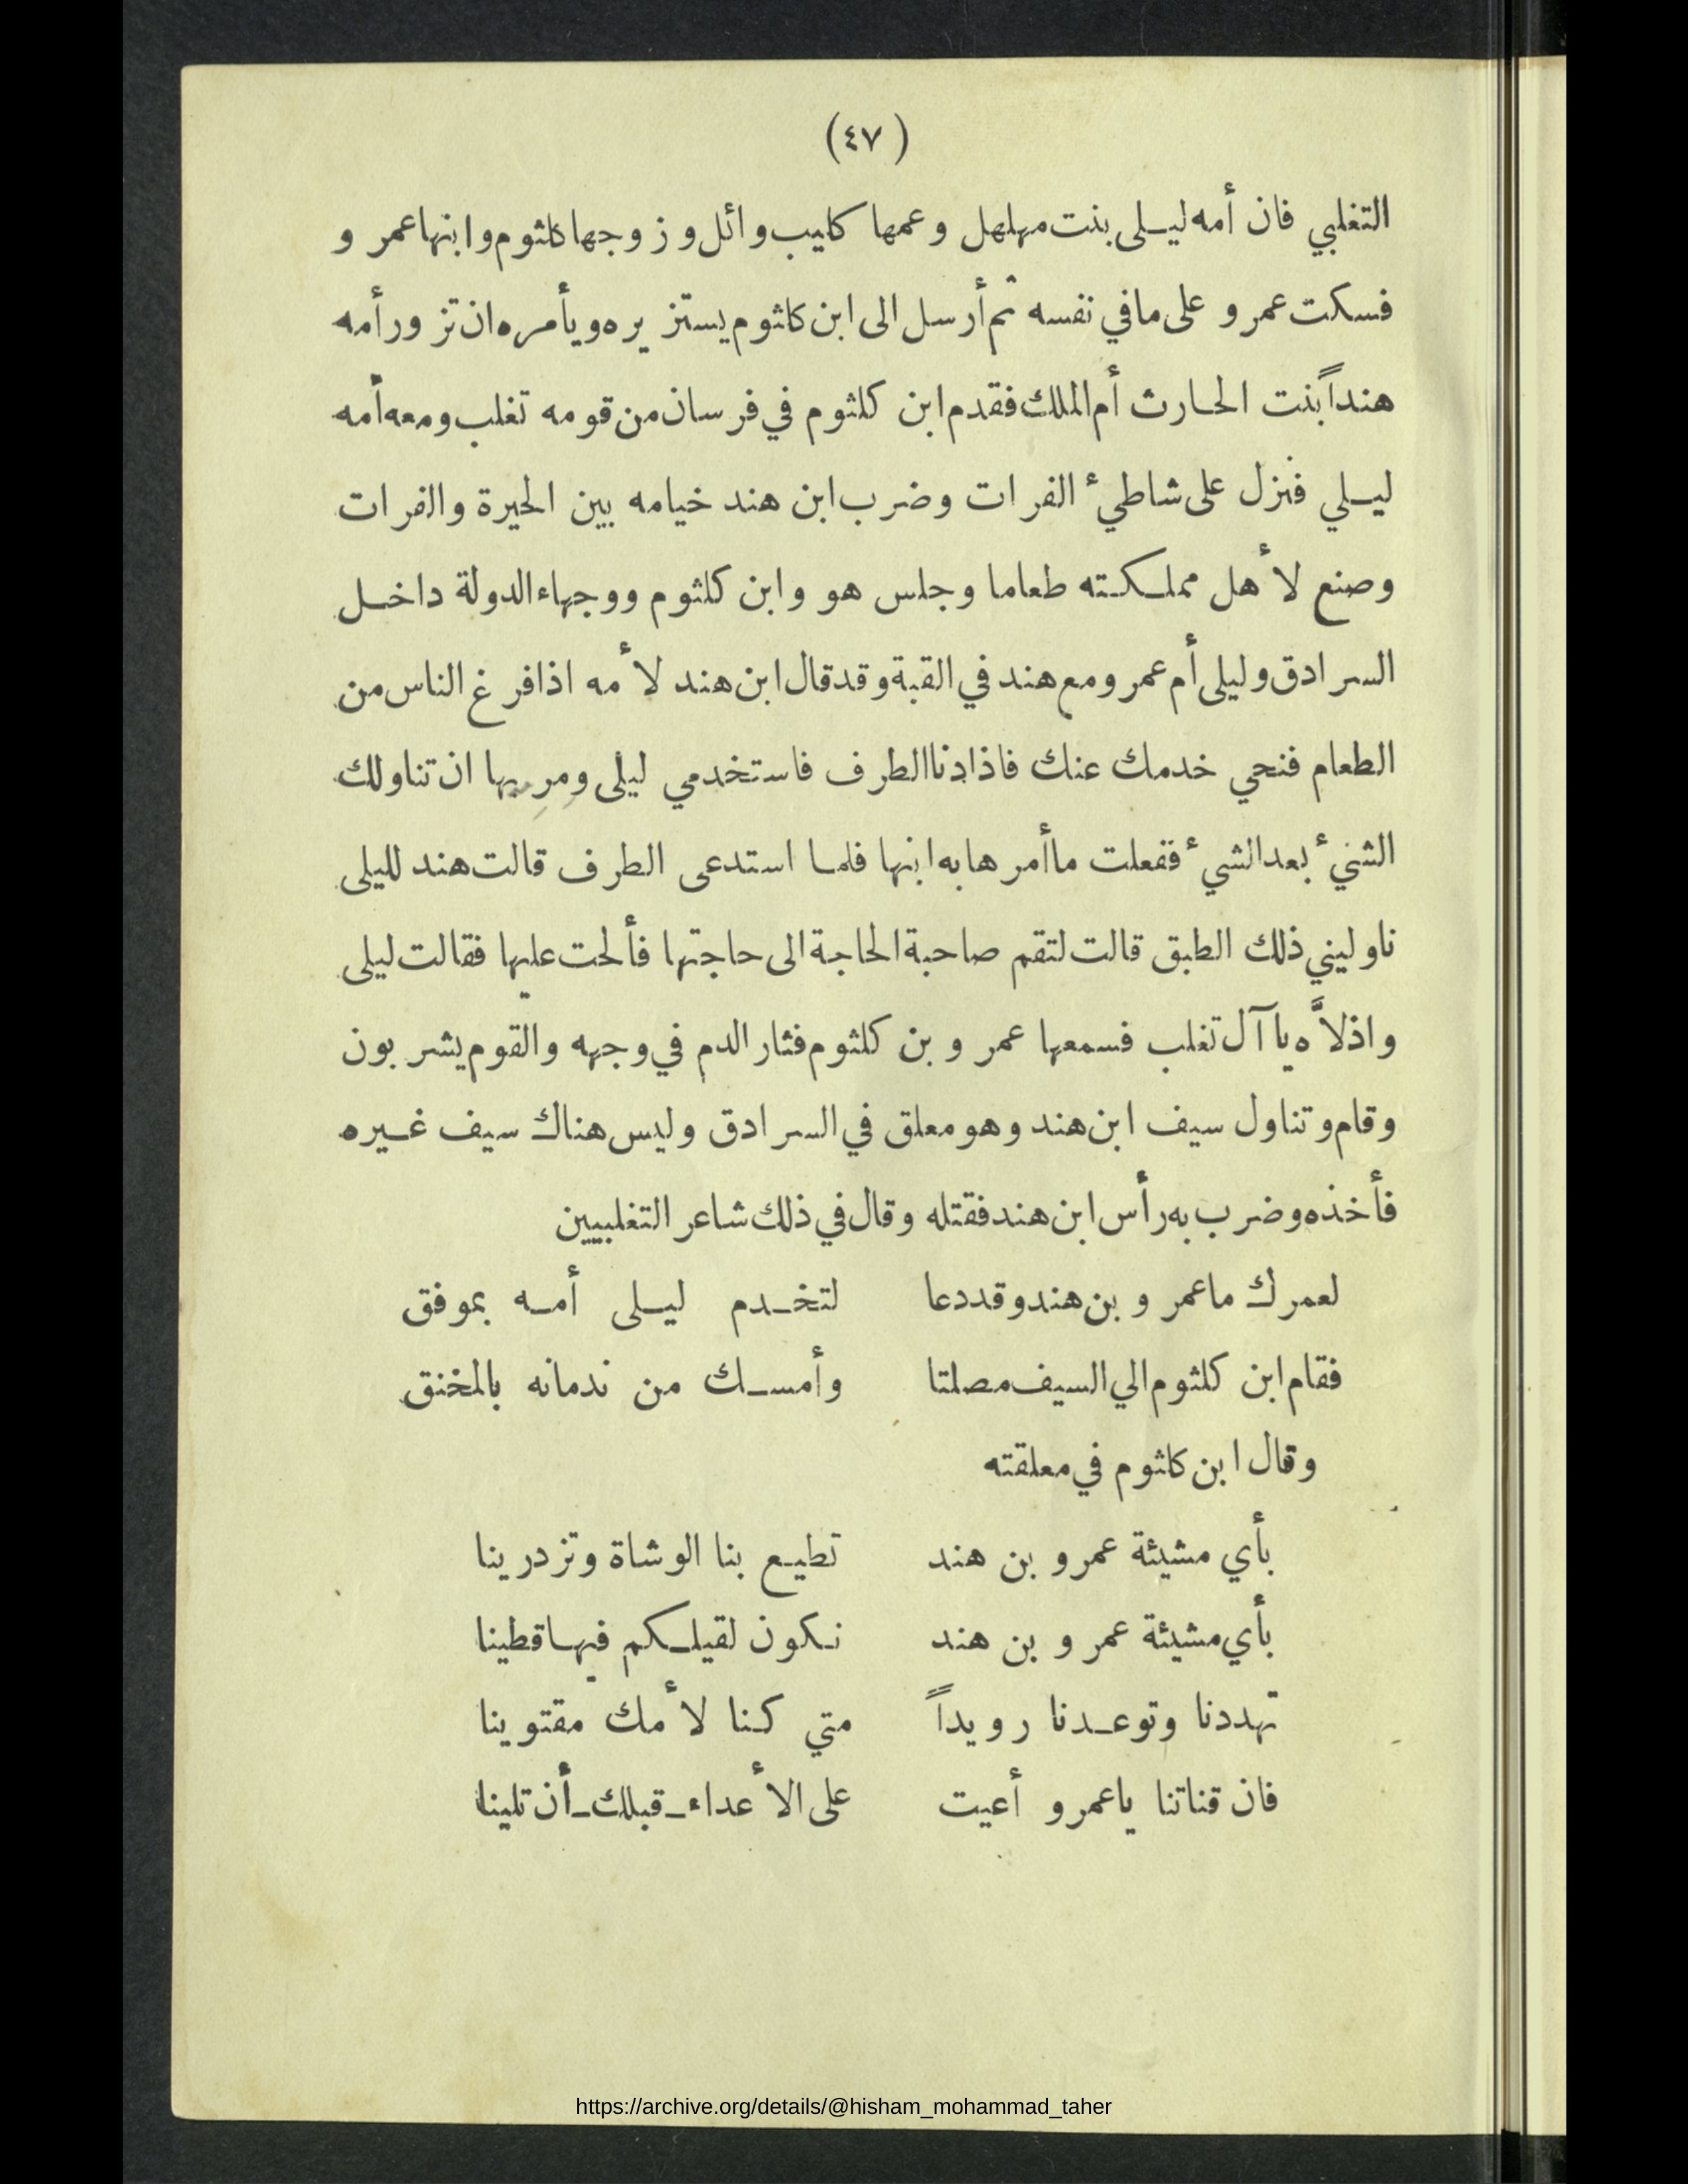 (٤٧)
التغلبي فان أمه ليلى بنت مهلهل وعمها كليب وائل وزوجها كلثوم وابنها عمرو
فسكت عمرو على ما في نفسه ثم أرسل الى ابن كلثوم يستزيره ويأمره ان تزور أمه
هنداً بنت الحارث أم الملك فقدم ابن كلثوم في فرسان من قومه تغلب ومعه أمه
ليلي فنزل على شاطيء الفرات وضرب ابن هند خيامه بين الحيرة والفرات
وصنع لأهل مملكته طعاما وجلس هو وابن كلثوم ووجهاء الدولة داخل
السرادق وليلى أم عمرو مع هند في القبة وقد قال ابن هند لأمه اذا فرغ الناس من
الطعام فنحي خدمك عنك فاذا دنا الطرف فاستخدمي ليلى ومريها ان تناولك
الشيء بعد الشيء ففعلت ما أمرها به ابنها فلما استدعى الطرف قالت هند لليلى
ناوليني ذلك الطبق قالت لتقم صاحبة الحاجة الى حاجتها فألحت عليها فقالت ليلى
واذلاَّه يا آل تغلب فسمعها عمرو بن كلثوم فثار الدم في وجهه والقوم يشربون
وقام وتناول سيف ابن هند وهو معلق في السرادق وليس هناك سيف غيره
فأخذه وضرب به رأس ابن هند فقتله وقال في ذلك شاعر التغلبيين
لعمرك ما عمرو بن هند وقد دعا لتخدم ليلى أمه بموفق
فقام ابن كلثوم الي السيف مصلتا وأمسك من ندمانه بالمخنق
وقال ابن كلثوم في معلقته
بأي مشيئة عمرو بن هند تطيع بنا الوشاة وتزدرينا
بأي مشيئة عمرو بن هند نكون لقيلكم فيها قطينا
تهددنا وتوعدنا رويداً متي كنا لأمك مقتوينا
فان قناتنا يا عمرو أعيت على الأعداء قبلك أن تلينا
https://archive.org/details/@hisham_mohammad_taher